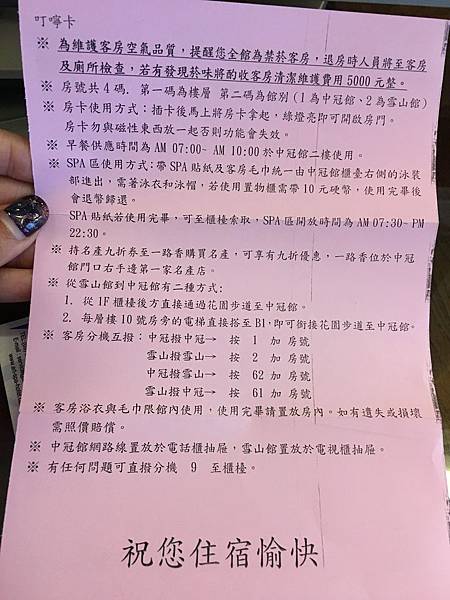 叮嚀卡
※ 為維護客房空氣品質，提醒您全館為禁菸客房，退房時人員將至客房
及廁所檢查，若有發現菸味將酌收客房清潔維護費用5000元整。
※ 房號共4碼. 第一碼為樓層 第二碼為館別(1為中冠館、2為雪山館)
※ 房卡使用方式：插卡後馬上將房卡拿起，綠燈亮即可開啟房門。
房卡勿與磁性東西放一起否則功能會失效。
※ 早餐供應時間為 AM 07:00~ AM 10:00於中冠館二樓使用。
※ SPA區使用方式：帶SPA貼紙及客房毛巾統一由中冠館櫃臺右側的泳裝
部進出，需著泳衣和泳帽，若使用置物櫃需帶10元硬幣，使用完畢後
會退幣歸還。
SPA貼紙若使用完畢，可至櫃檯索取，SPA區開放時間為AM 07:30~ PM
22:30。
※ 持名產九折券至一路香購買名產，可享有九折優惠，一路香位於中冠
館門口右手邊第一家名產店。
※ 從雪山館到中冠館有二種方式：
1. 從1F櫃檯後方直接通過花園步道至中冠館。
2. 每層樓10號房旁的電梯直接搭至B1,即可銜接花園步道至中冠館。
※ 客房分機互撥：中冠撥中冠→ 按 1 加 房號
雪山撥雪山→ 按 2 加 房號
中冠撥雪山→ 按 62 加 房號
雪山撥中冠→ 按 61 加 房號
※ 客房浴衣與毛巾限館內使用，使用完畢請置放房內。如有遺失或損壞
需照價賠償。
※ 中冠館網路線置放於電話櫃抽屜，雪山館置放於電視櫃抽屜。
※ 有任何問題可直撥分機 9 至櫃檯。
祝您住宿愉快